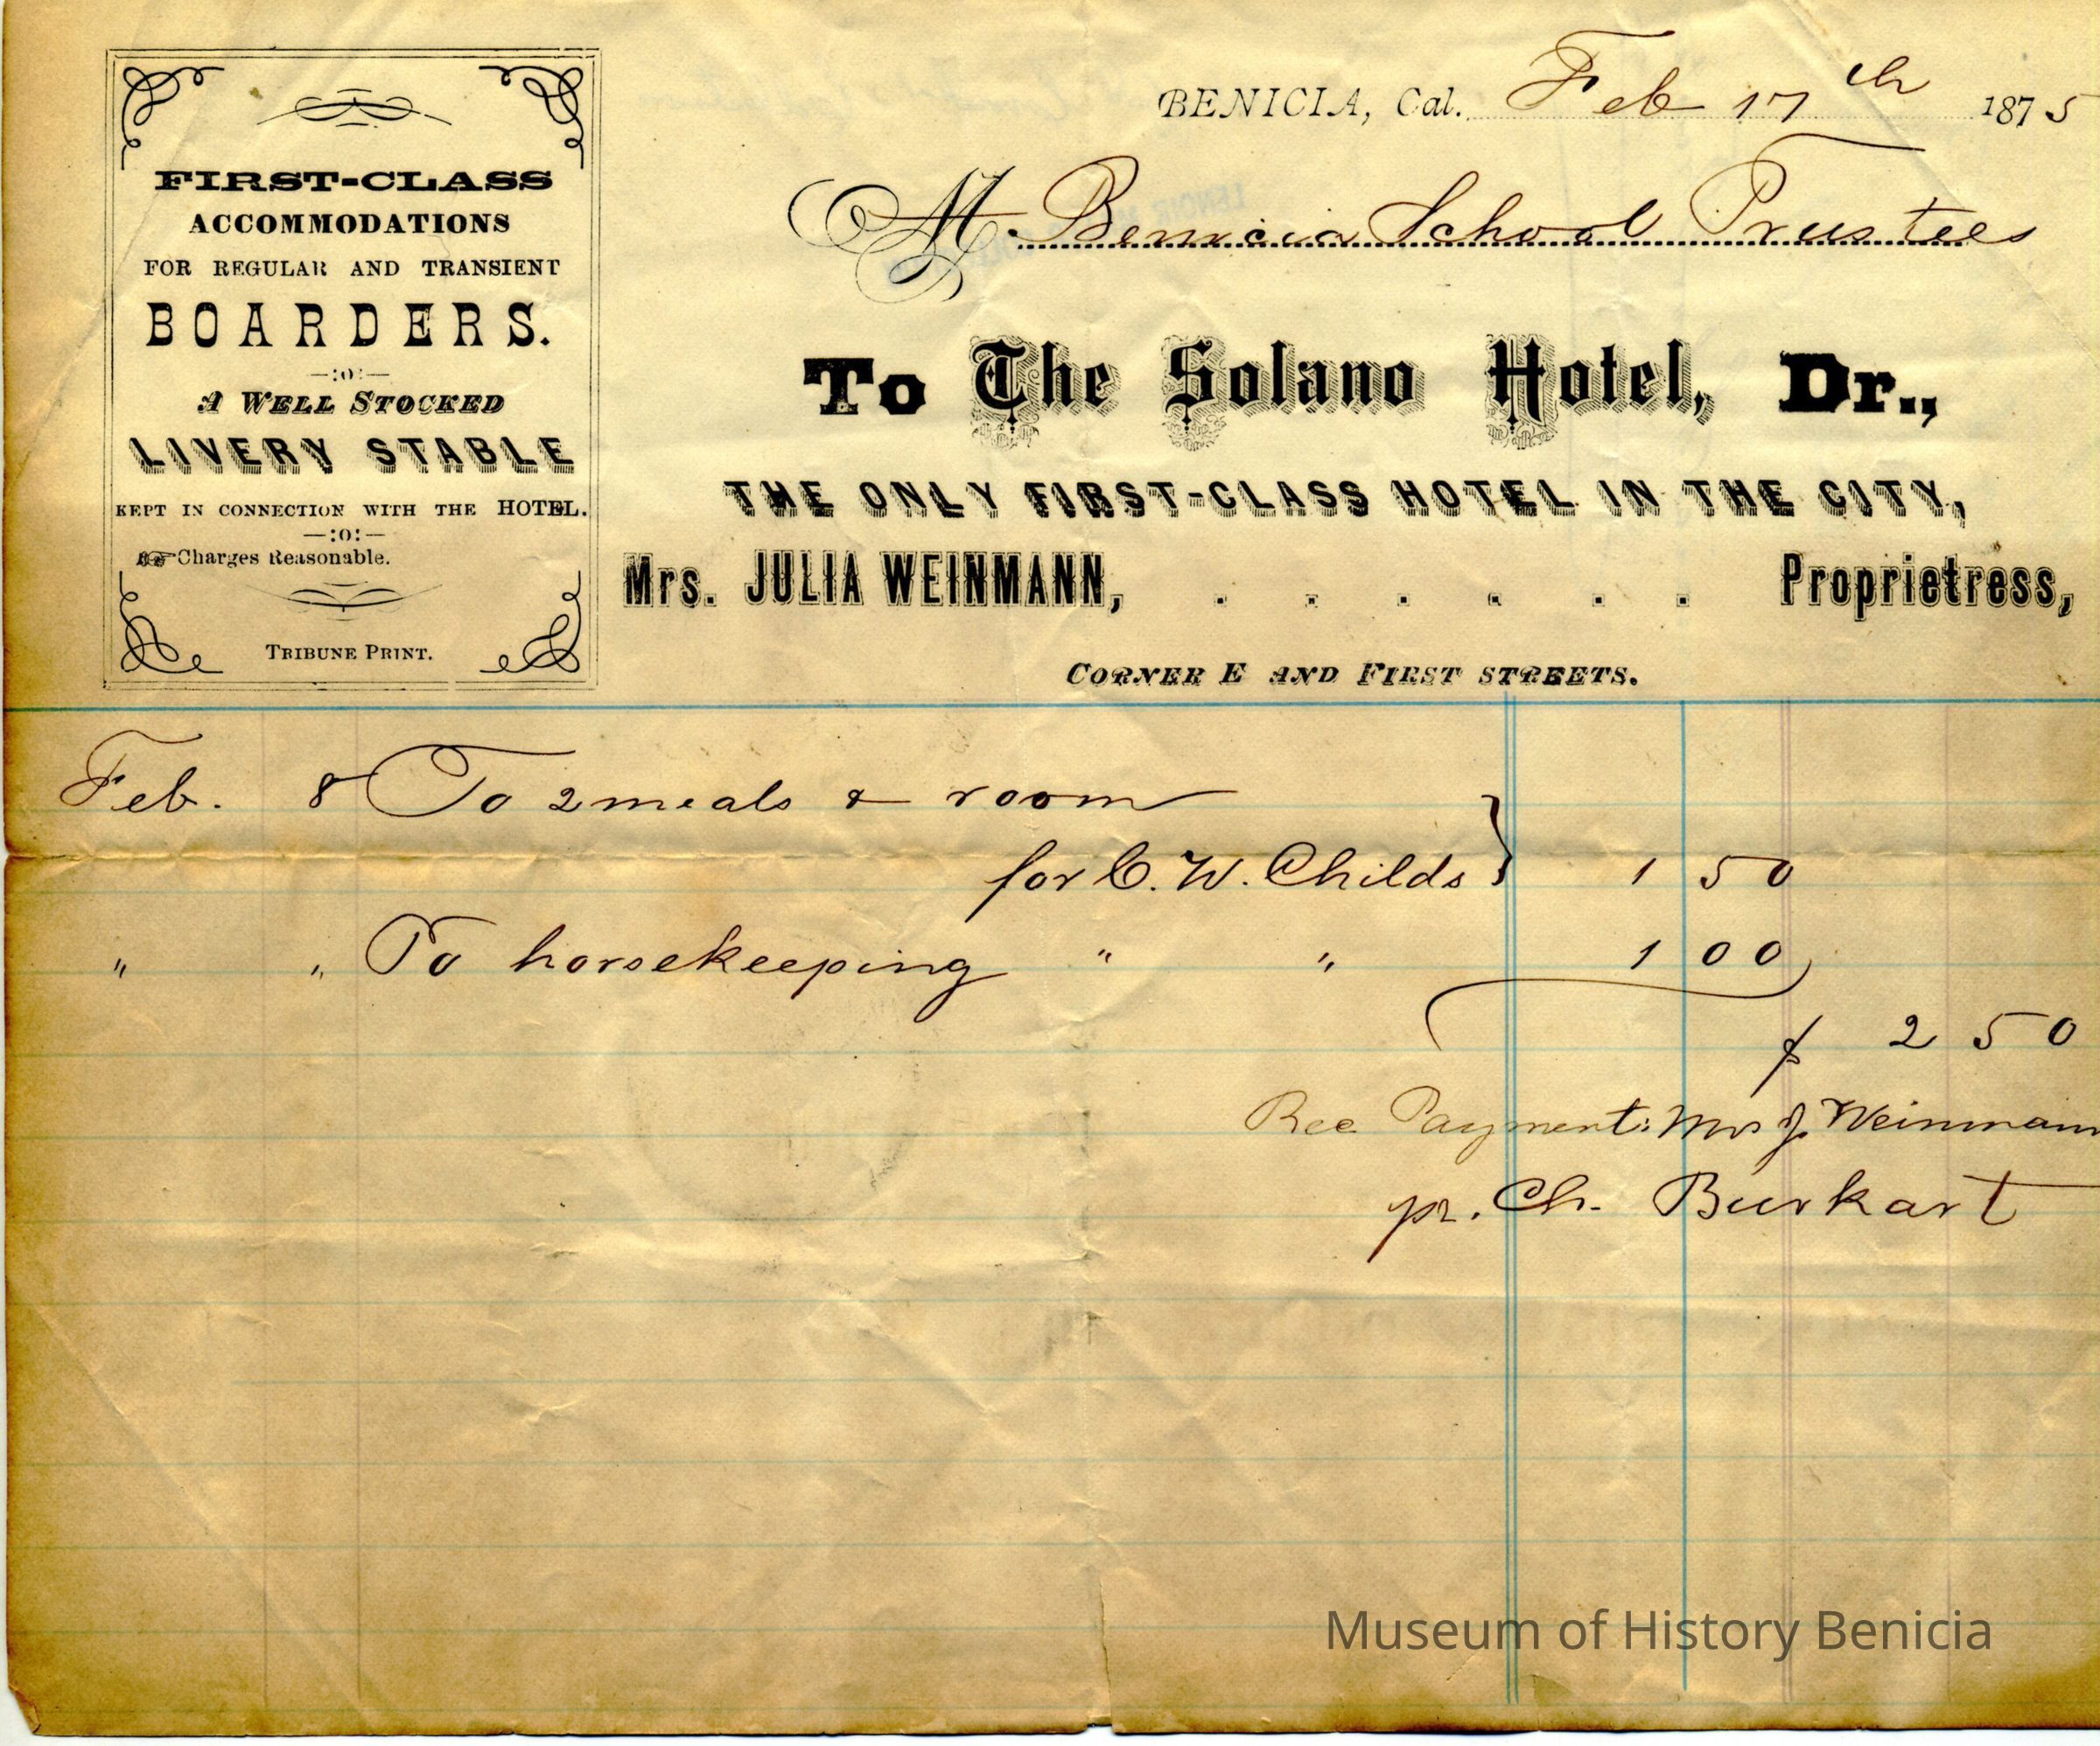 FIRST-CLASS
ACCOMMODATIONS
FOR REGULAR AND TRANSIENT
BOARDERS.
—:o:—
A WELL STOCKED
LIVERY STABLE
KEPT IN CONNECTION WITH THE HOTEL.
—:o:—
☞ Charges Reasonable.
TRIBUNE PRINT.
BENICIA, Cal. Feb 17th 1875
M. Benicia School Trustees
To The Solano Hotel, Dr.,
THE ONLY FIRST-CLASS HOTEL IN THE CITY,
Mrs. JULIA WEINMANN, . . . . . . Proprietress,
CORNER E AND FIRST STREETS.
Feb. 8 To 2 meals & room
for C. W. Childs } 1 50
" " To horsekeeping " " 1 00
$ 2 50
Rec Payment: Mrs J. Weinmann
pr. Ch. Burkart
Museum of History Benicia